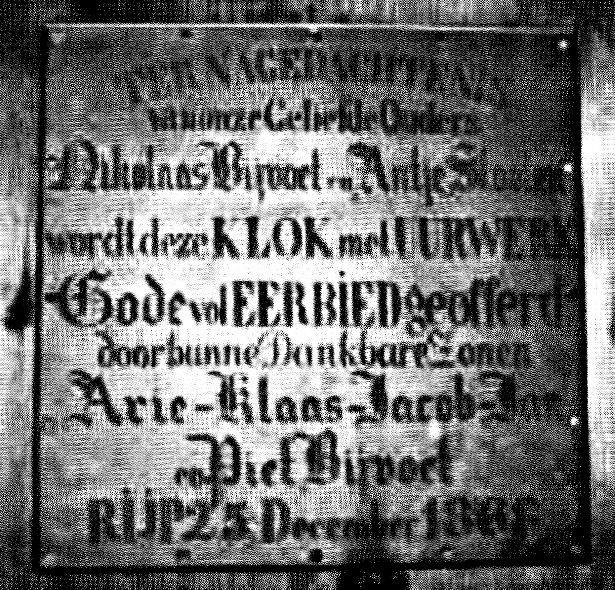 TER NAGEDACHTENIS
van onze Geliefde Ouders
Nikolaas Bijvoet en Antje
wordt deze KLOK met UURWERK
Gode vol EERBiED geofferd
door hunne Dankbare Zonen
Arie-Klaas-Jacob-Jan
en Piet Bijvoet
RIJP 25 December